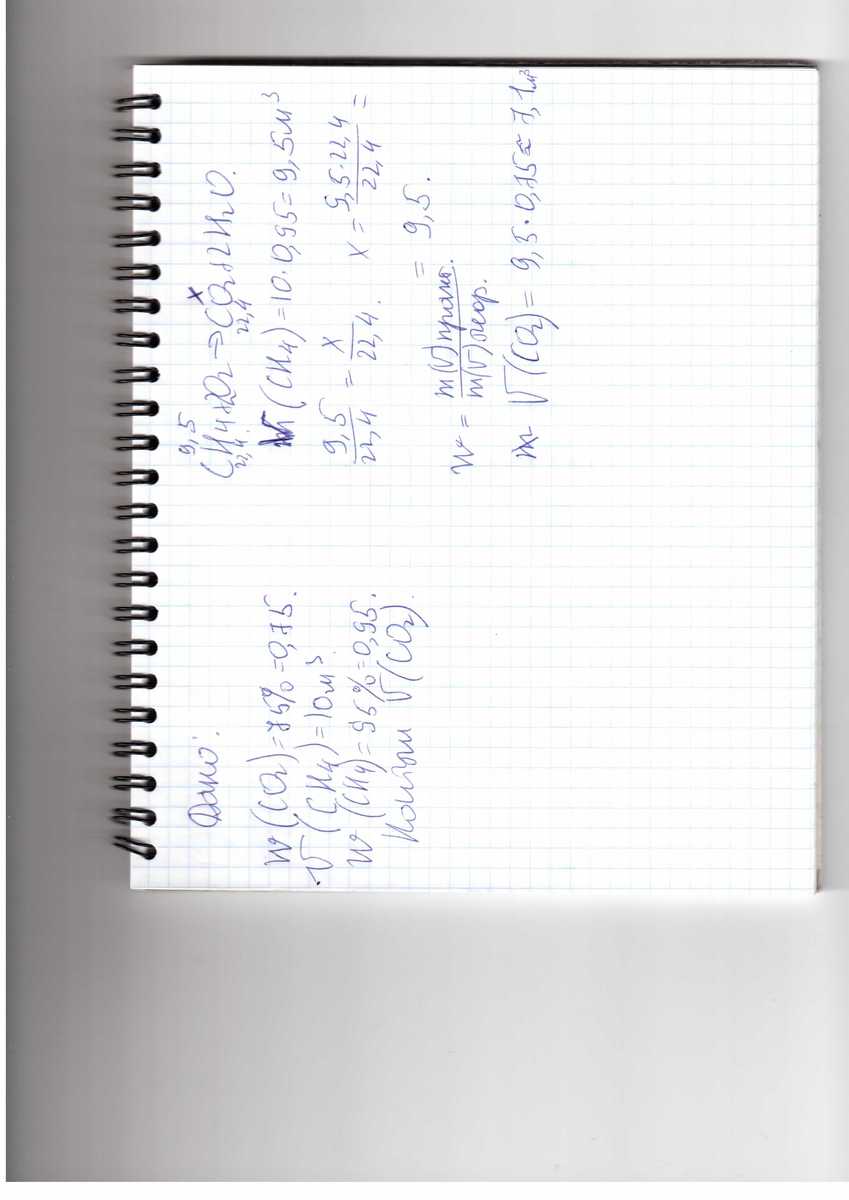 Дано:
W(CO2)=75%=0,75.
V(CH4)=10м³
W(CH4)=95%=0,95.
V(CO2).
9,5 x
CH4+2O2→CO2+2H2O.
22,4. 22,4
V(CH4)=10·0,95=9,5м³
9,5/22,4 = x/22,4. x = 9,5·22,4/22,4 =
= 9,5.
W = m(V)практ./m(V)теор.
V(CO2) = 9,5·0,75≈7,1м³